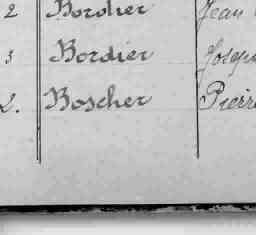 2 Bordier Jean
3 Bordier Joseph
2. Boscher Pierre